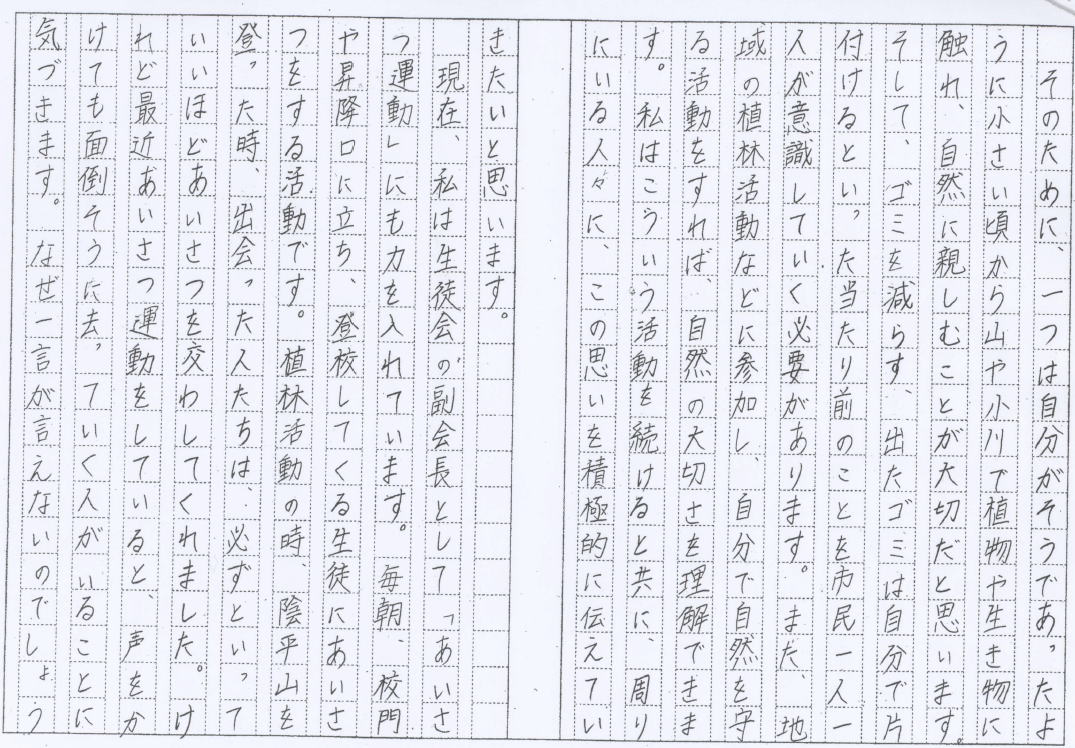 そのために、一つは自分がそうであったよ
うに小さい頃から山や小川で植物や生き物に
触れ、自然に親しむことが大切だと思います。
そして、ゴミを減らす、出たゴミは自分で片
付けるといった当たり前のことを市民一人一
人が意識していく必要があります。また、地
域の植林活動などに参加し、自分で自然を守
る活動をすれば、自然の大切さを理解できま
す。私はこういう活動を続けると共に、周り
にいる人々に、この思いを積極的に伝えてい
きたいと思います。
　現在、私は生徒会の副会長として「あいさ
つ運動」にも力を入れています。毎朝、校門
や昇降口に立ち、登校してくる生徒にあいさ
つをする活動です。植林活動の時、陰平山を
登った時、出会った人たちは、必ずといって
いいほどあいさつを交わしてくれました。け
れど最近あいさつ運動をしていると、声をか
けても面倒そうに去っていく人がいることに
気づきます。なぜ一言が言えないのでしょう